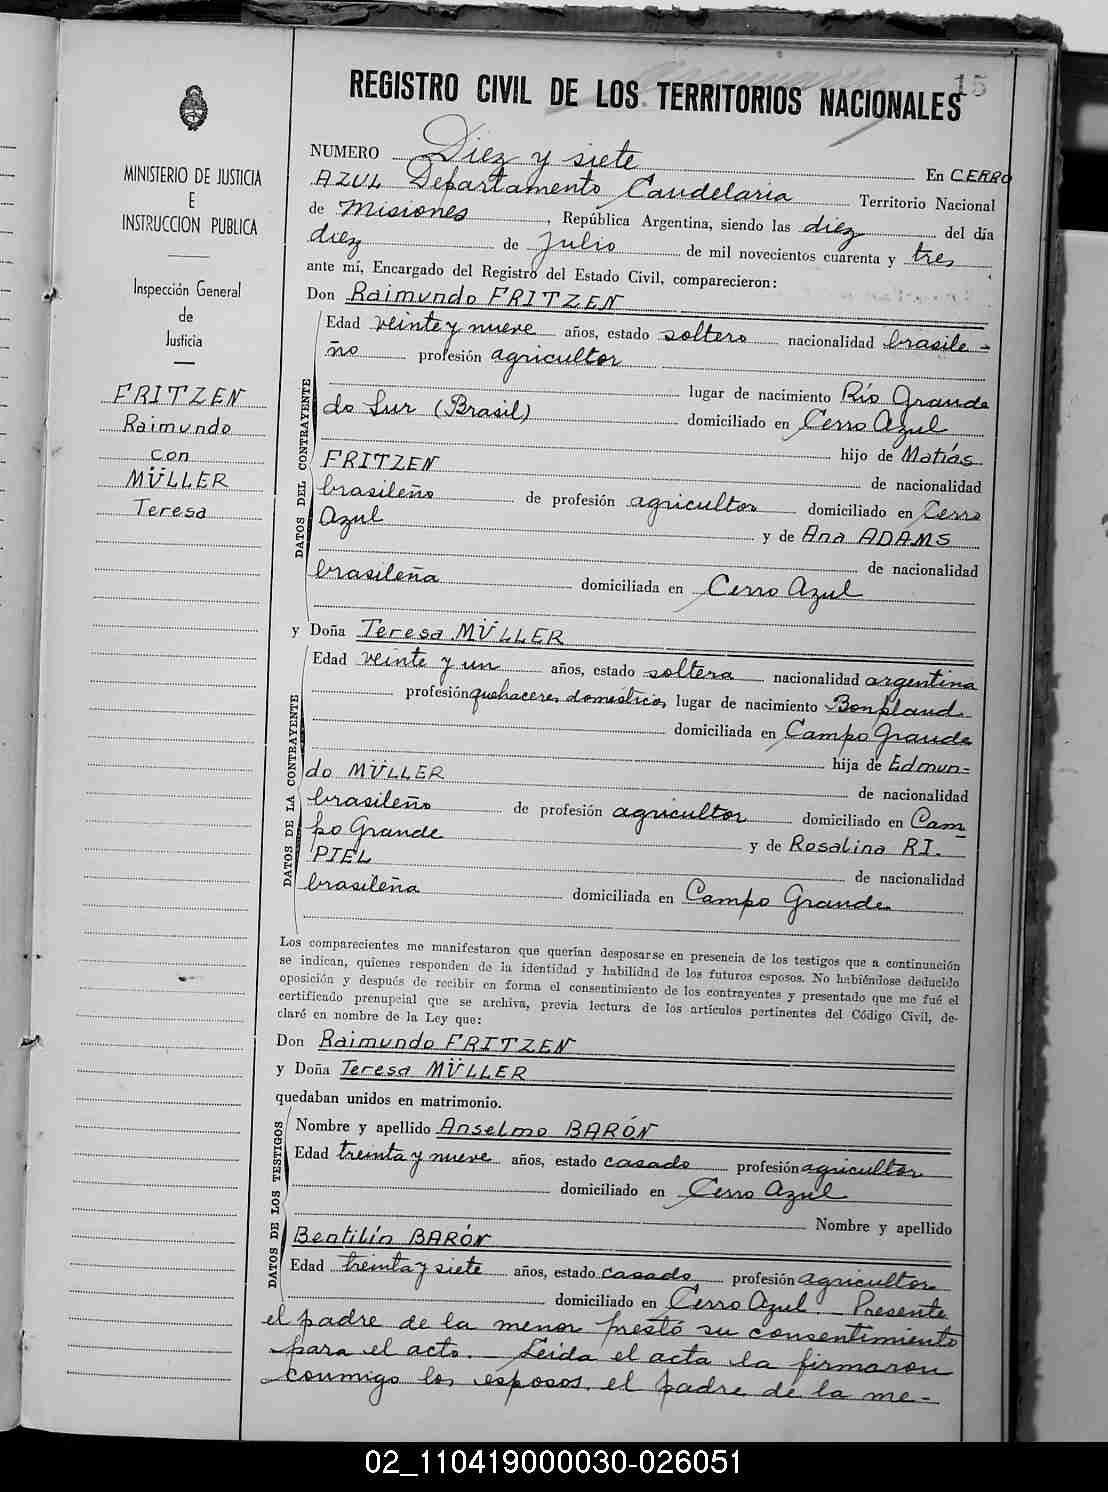 15
REGISTRO CIVIL DE LOS TERRITORIOS NACIONALES
MINISTERIO DE JUSTICIA
E
INSTRUCCION PUBLICA
Inspección General
de
Justicia
FRITZEN
Raimundo
con
MÜLLER
Teresa
NUMERO Diez y siete En CERRO
AZUL Departamento Candelaria Territorio Nacional
de Misiones, República Argentina, siendo las diez del día
diez de Julio de mil novecientos cuarenta y tres
ante mí, Encargado del Registro del Estado Civil, comparecieron:
Don Raimundo FRITZEN
DATOS DEL CONTRAYENTE
Edad veinte y nueve años, estado soltero nacionalidad brasile-
ño profesión agricultor
lugar de nacimiento Río Grande
do Sur (Brasil) domiciliado en Cerro Azul
hijo de Matías
FRITZEN de nacionalidad
brasileño de profesión agricultor domiciliado en Cerro
Azul y de Ana ADAMS
de nacionalidad
brasileña domiciliada en Cerro Azul
y Doña Teresa MÜLLER
DATOS DE LA CONTRAYENTE
Edad veinte y un años, estado soltera nacionalidad argentina
profesión quehaceres domésticos lugar de nacimiento Bonpland
domiciliada en Campo Grande
hija de Edmun-
do MÜLLER de nacionalidad
brasileño de profesión agricultor domiciliado en Cam
po Grande y de Rosalina RI.
PIEL de nacionalidad
brasileña domiciliada en Campo Grande
Los comparecientes me manifestaron que querían desposarse en presencia de los testigos que a continuación
se indican, quienes responden de la identidad y habilidad de los futuros esposos. No habiéndose deducido
oposición y después de recibir en forma el consentimiento de los contrayentes y presentado que me fué el
certificado prenupcial que se archiva, previa lectura de los artículos pertinentes del Código Civil, de-
claré en nombre de la Ley que:
Don Raimundo FRITZEN
y Doña Teresa MÜLLER
quedaban unidos en matrimonio.
DATOS DE LOS TESTIGOS
Nombre y apellido Anselmo BARÓN
Edad treinta y nueve años, estado casado profesión agricultor
domiciliado en Cerro Azul
Nombre y apellido
Bentilín BARÓN
Edad treinta y siete años, estado casado profesión agricultor
domiciliado en Cerro Azul. Presente
el padre de la menor prestó su consentimiento
para el acto. Leida el acta la firmaron
conmigo los esposos, el padre de la me-
02_110419000030-026051